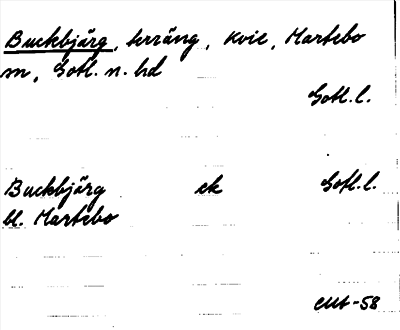 Buckbjärg, terräng, Kvie, Martebo
sn, Gotl. n. hd
Gotl. l.
Buckbjärg ek Gotl. l.
bl. Martebo
EUt-58